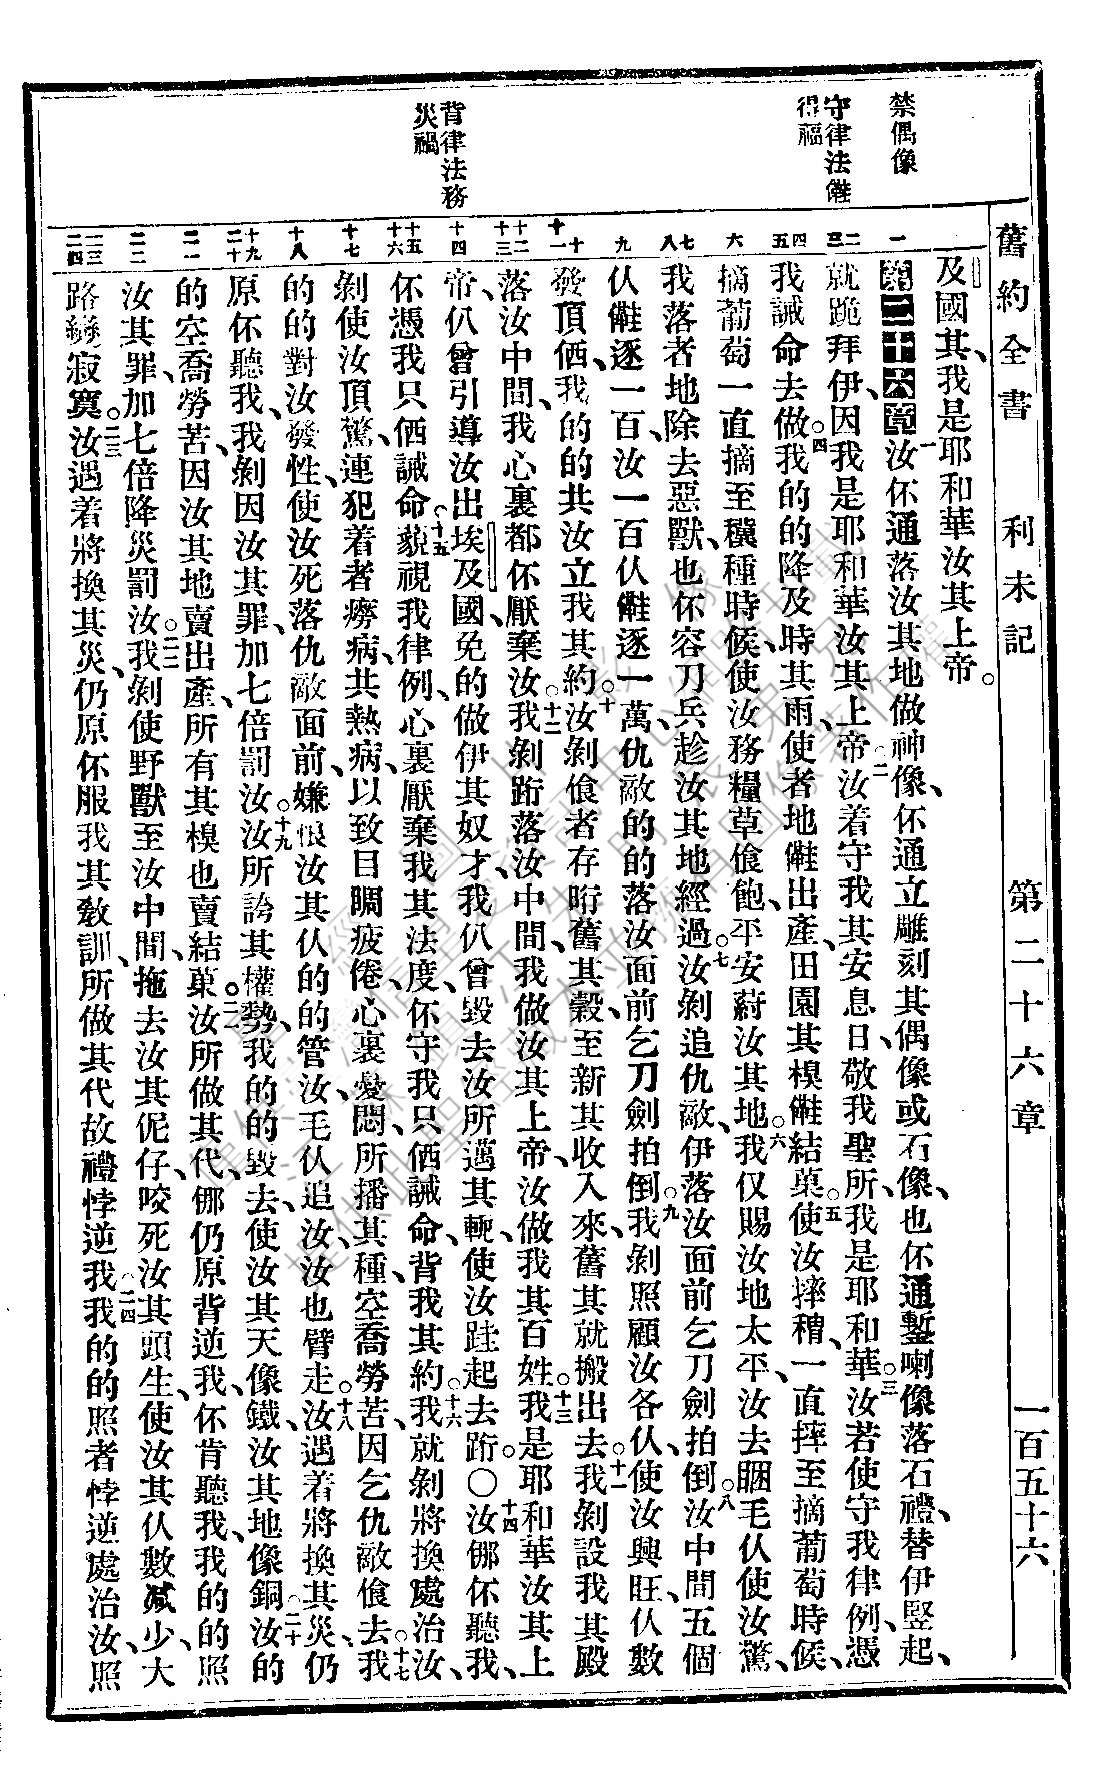 舊約全書　利未記　第二十六章　一百五十六
禁偶像
守律法儺
得福
背律法務
災禍
及國其、我是耶和華汝其上帝。
第二十六章 一汝伓通落汝其地做神像、伓通立雕刻其偶像或石像、也伓通鏨喇像落石禮替伊豎起、
就跪拜伊、因我是耶和華汝其上帝。二汝着守我其安息日、敬我聖所、我是耶和華。三汝若使守我律例、憑
我誡命去做。四我的的降及時其雨、使者地儺出產、田園其模儺結菓。五使汝摔稰一直摔至摘葡萄時候、
摘葡萄一直摘至穬種時候、使汝務糧草飧飽、平安蔚汝其地。六我仅賜汝地太平、汝去睏毛仈使汝驚、
我落者地除去惡獸、也伓容刀兵趁汝其地經過。七汝剝追仇敵、伊落汝面前乞刀劍拍倒。八汝中間五個
仈儺逐一百、汝一百仈儺逐一萬、仇敵的的落汝面前乞刀劍拍倒。九我剝照顧汝各仈、使汝興旺、仈數
發頂価、我的的共汝立我其約。十汝剝飧者存䀪舊其穀、至新其收入來、舊其就搬出去。十一我剝設我其殿
落汝中間、我心裏都伓厭棄汝。十二我剝䟰落汝中間、我做汝其上帝、汝做我其百姓。十三我是耶和華汝其上
帝、仈曾引導汝出埃及國、免的做伊其奴才、我仈曾毀去汝所邁其軛、使汝跬起去䟰。〇十四汝㑚伓聽我、
伓憑我只価誡命。十五藐視我律例、心裏厭棄我其法度、伓守我只価誡命、背我其約。十六我就剝將換處治汝、
剝使汝頂驚、連犯着者癆病、共熱病、以致目睭疲倦、心裏憂悶、所播其種、空喬勞苦、因乞仇敵飧去。十七我
的的對汝發性、使汝死落仇敵面前、嫌恨汝其仈的的管汝、毛仈追汝、汝也臂走。十八汝遇着將換其災、仍
原伓聽我、我剝因汝其罪、加七倍罰汝。十九汝所誇其權勢、我的的毀去、使汝其天像鐵、汝其地像銅。二十汝的
的空喬勞苦、因汝其地賣出產、所有其模也賣結菓。二一汝所做其代、㑚仍原背逆我、伓肯聽我、我的的照
汝其罪、加七倍降災罰汝。二二我剝使野獸至汝中間、拖去汝其伲仔、咬死汝其頭生、使汝其仈數減少、大
路變寂寞。二三汝遇着將換其災、仍原伓服我其教訓、所做其代故禮悖逆我。二四我的的照者悖逆處治汝、照